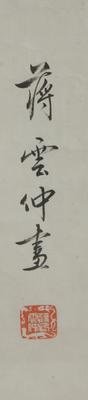 蔣雲仲畫